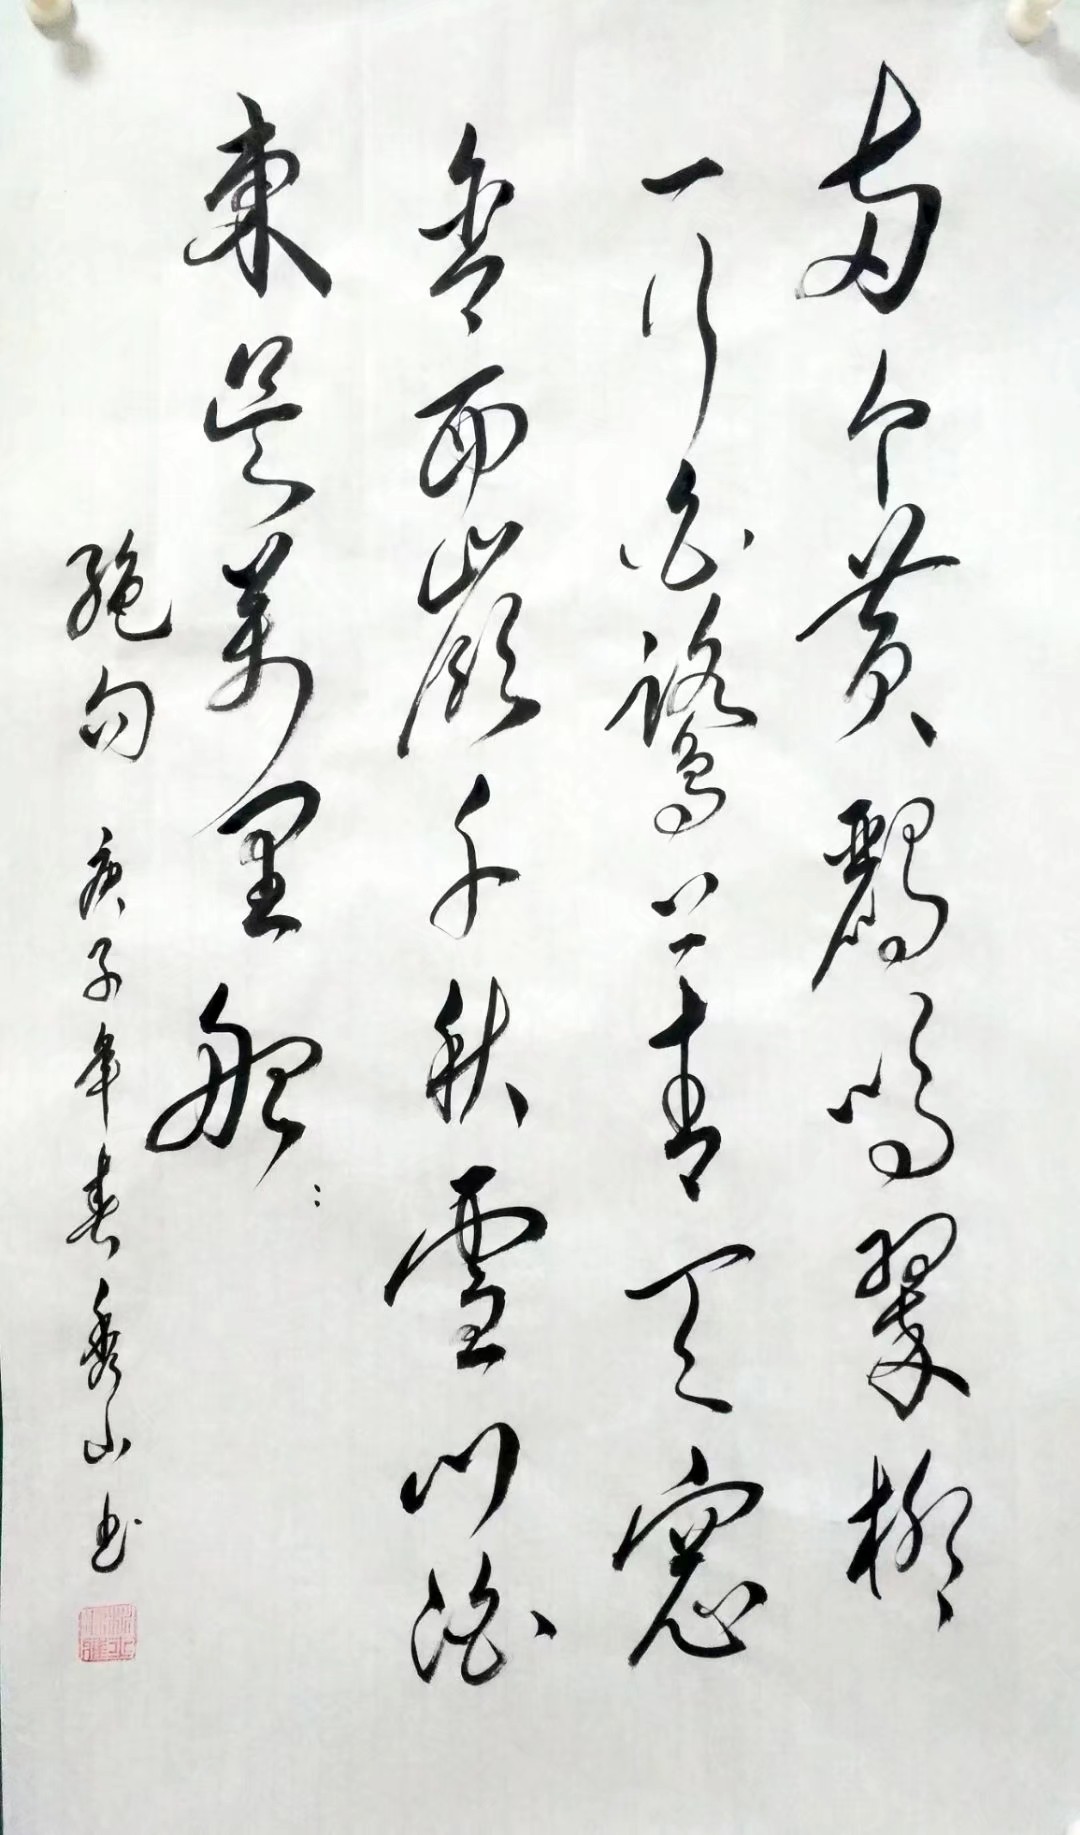 两个黄鹂鸣翠柳
一行白鹭上青天窗
含西岭千秋雪门泊
东吴万里船
绝句 庚子年春秀山书